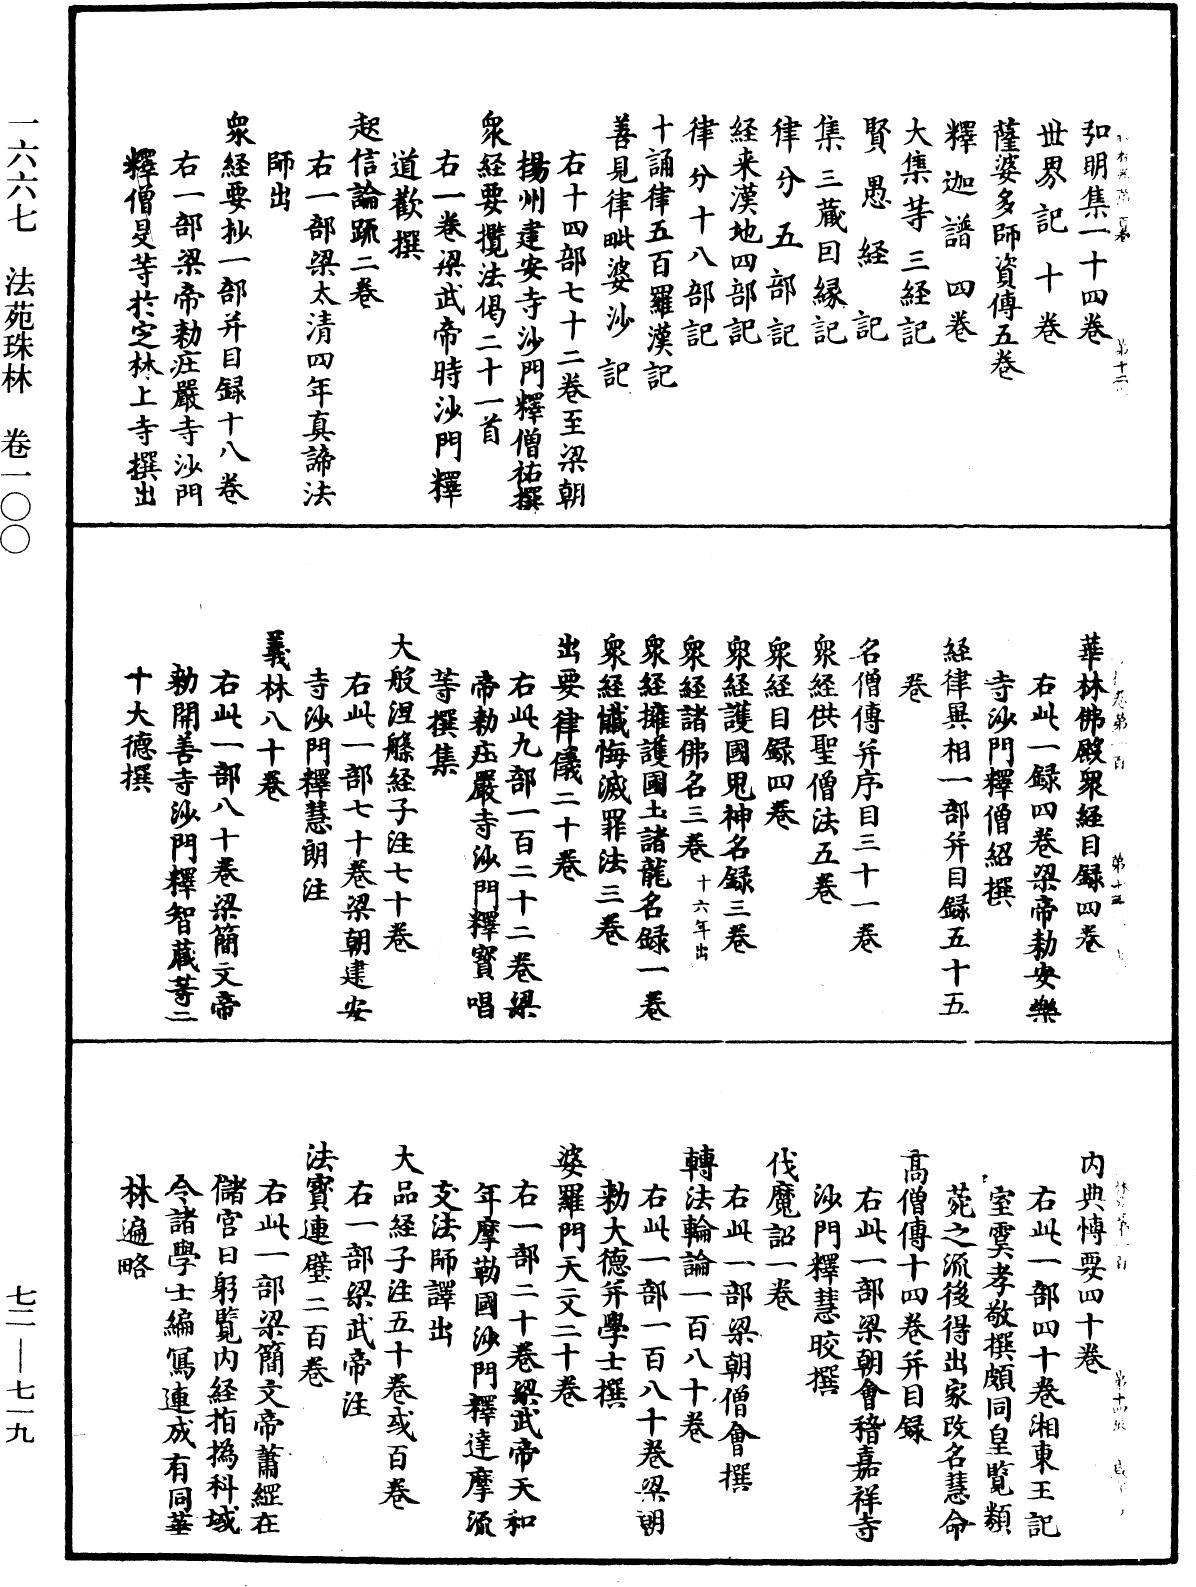 弘明集一十四卷
世界記十卷
薩婆多師資傳五卷
釋迦譜四卷
大集等三經記
賢愚經記
集三藏因緣記
律分五部記
経来漢地四部記
律分十八部記
十誦律五百羅漢記
善見律毗婆沙記
右十四部七十二卷至梁朝
揚州建安寺沙門釋僧祐撰
衆経要攬法偈二十一首
右一卷梁武帝時沙門釋
道歡撰
起信論疏二卷
右一部梁太清四年真諦法
師出
衆経要抄一部并目録十八卷
右一部梁帝勑莊嚴寺沙門
釋僧旻等於定林上寺撰出
華林佛殿衆経目録四卷
右此一録四卷梁帝勑安樂
寺沙門釋僧紹撰
経律異相一部并目録五十五
卷
名僧傳并序目三十一卷
衆経供聖僧法五卷
衆経目録四卷
衆経護國鬼神名録三卷
衆経諸佛名三卷十六年出
衆経擁護國土諸龍名録一卷
衆経懺悔滅罪法三卷
出要律儀二十卷
右此九部一百二十二卷梁
帝勑莊嚴寺沙門釋寶唱
等撰集
大般涅槃経子注七十卷
右此一部七十卷梁朝建安
寺沙門釋慧朗注
義林八十卷
右此一部八十卷梁簡文帝
勑開善寺沙門釋智藏等二
十大德撰
内典博要四十卷
右此一部四十卷湘東王記
室虞孝敬撰頗同皇覽類
苑之流後得出家改名慧命
高僧傳十四卷并目録
右此一部梁朝會稽嘉祥寺
沙門釋慧皎撰
伐魔詔一卷
右此一部梁朝僧會撰
轉法輪論一百八十卷
右此一部一百八十卷梁朝
勑大德并學士撰
婆羅門天文二十卷
右一部二十卷梁武帝天和
年摩勒國沙門釋達摩流
支法師譯出
大品経子注五十卷或百卷
右一部梁武帝注
法寶連璧二百卷
右此一部梁簡文帝蕭綱在
儲宮日躬覽内経指撝科域
令諸學士編寫連成有同華
林遍略
一六六七　法苑珠林　卷一〇〇
七二—七一九